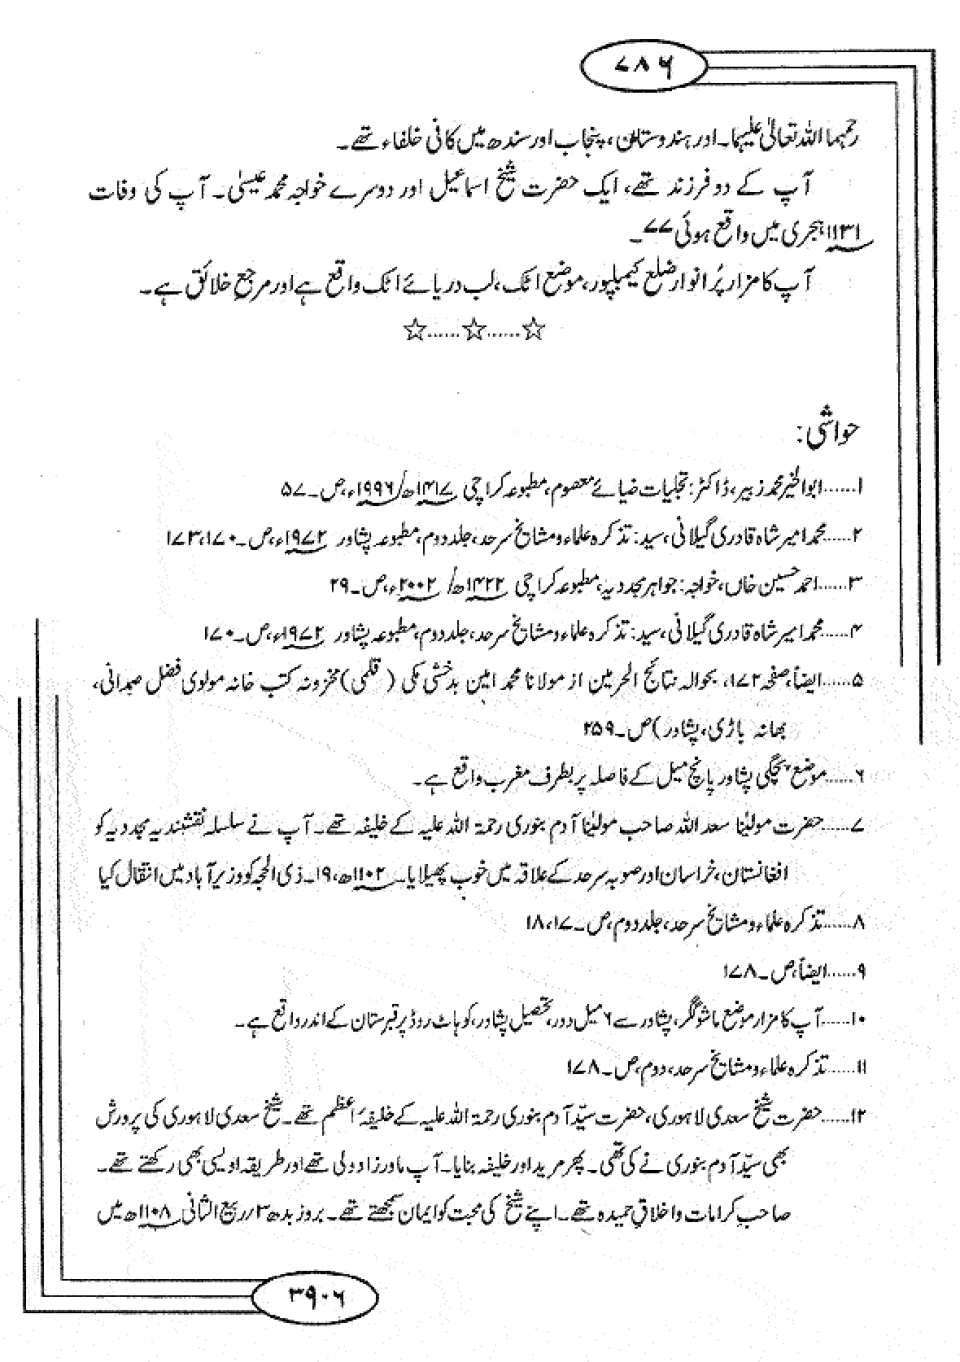 ۷۸۶
رحمہما اللہ تعالیٰ علیہما۔ اور ہندوستان، پنجاب اور سندھ میں کافی خلفاء تھے۔
آپ کے دو فرزند تھے، ایک حضرت شیخ اسماعیل اور دوسرے خواجہ محمد عیسیٰ۔ آپ کی وفات
۱۱۳۱ ہجری میں واقع ہوئی ۷۷۔
آپ کا مزار پُر انوار ضلع کیمبلپور، موضع اٹک، لب دریائے اٹک واقع ہے اور مرجع خلائق ہے۔
☆......☆......☆
حواشی:
۱......ابوالخیر محمد زبیر، ڈاکٹر: تجلیات ضیائے معصوم، مطبوعہ کراچی ۱۴۱۷ھ/۱۹۹۶ء، ص۔۵۷
۲......محمد امیر شاہ قادری گیلانی، سید: تذکرہ علماء و مشایخ سرحد، جلد دوم، مطبوعہ پشاور ۱۹۷۲ء، ص۔۱۷۰، ۱۷۳
۳......احمد حسین خاں، خواجہ: جواہر مجددیہ، مطبوعہ کراچی ۱۴۲۲ھ/۲۰۰۲ء، ص۔۲۹
۴......محمد امیر شاہ قادری گیلانی، سید: تذکرہ علماء و مشایخ سرحد، جلد دوم، مطبوعہ پشاور ۱۹۷۲ء، ص۔۱۷۰
۵......ایضاً، صفحہ ۱۷۲، بحوالہ نتائج الحرمین از مولانا محمد امین بدخشی مکی (قلمی) مخزونہ کتب خانہ مولوی فضل صمدانی،
بھانہ باڑی، پشاور) ص۔۲۵۹
۶......موضع پچگی پشاور پانچ میل کے فاصلہ پر بطرف مغرب واقع ہے۔
۷......حضرت مولیٰنا سعد اللہ صاحب مولیٰنا آدم بنوری رحمۃ اللہ علیہ کے خلیفہ تھے۔ آپ نے سلسلہ نقشندیہ مجددیہ کو
افغانستان، خراسان اور صوبہ سرحد کے علاقہ میں خوب پھیلایا۔ ۱۱۰۲ھ، ۱۹۔ ذی الحجہ کو وزیر آباد میں انتقال کیا
۸......تذکرہ علماء و مشایخ سرحد، جلد دوم، ص۔۱۷، ۱۸
۹......ایضاً، ص۔۱۷۸
۱۰......آپ کا مزار موضع ماشوگگر، پشاور سے ۶ میل دور، تحصیل پشاور، کوہاٹ روڈ پر قبرستان کے اندر واقع ہے۔
۱۱......تذکرہ علماء و مشایخ سرحد، دوم، ص۔۱۷۸
۱۲......حضرت شیخ سعدی لاہوری، حضرت سیّد آدم بنوری رحمۃ اللہ علیہ کے خلیفۂ اعظم تھے۔ شیخ سعدی لاہوری کی پرورش
بھی سیّد آدم بنوری نے کی تھی۔ پھر مرید اور خلیفہ بنایا۔ آپ مادر زاد ولی تھے اور طریقہ اویسی بھی رکھتے تھے۔
صاحبِ کرامات و اخلاقِ حمیدہ تھے۔ اپنے شیخ کی محبت کو ایمان سمجھتے تھے۔ بروز بدھ ۳/ربیع الثانی ۱۱۰۸ھ میں
۳۹۰۶